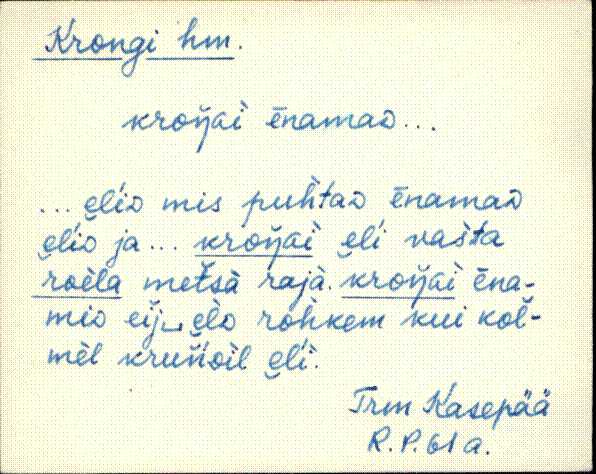 Krongi hm.
kroŋ̆ai̇̀ ēnamaᴅ...
... ęĺiᴅ mis puh̀taᴅ ēnamaᴅ
ęĺiᴅ ja... kroŋ̆ai̇̀ ęĺi vaš̀ta
roèla metšsà rajà. kroŋ̆ai̇̀ ēna-
miᴅ eij‿ęlᴅ rohkem kui koĺ-
mèl kruńᴅil ęĺi.
Trm Kasepää
R. P. 61 a.